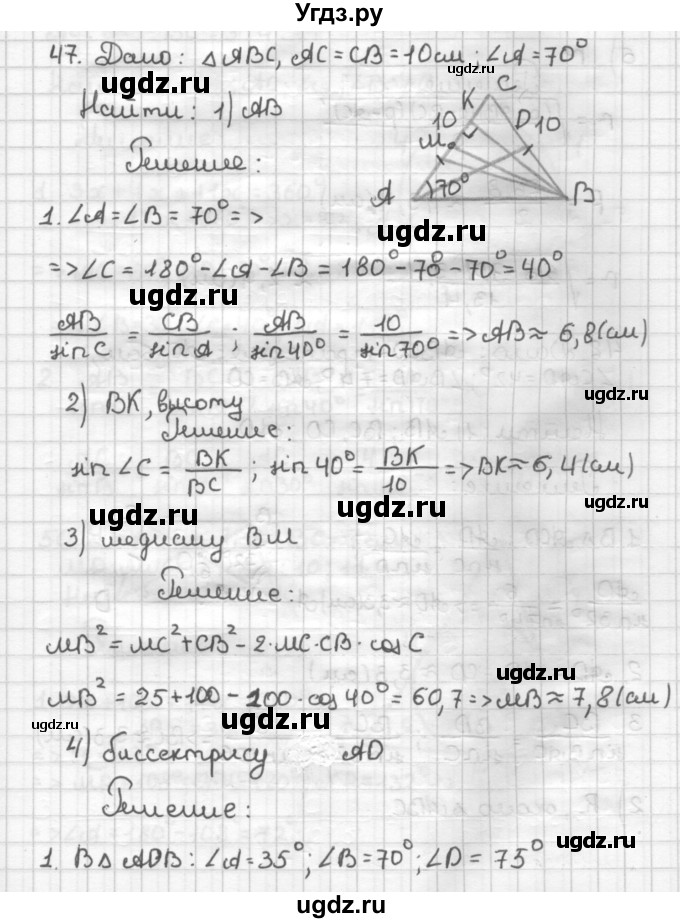 Угдз.ру
47. Дано: △ABC, AC = CB = 10 см; ∠A = 70°
ugdz.ru
ugdz.ru
Найти: 1) AB
K C
10 D 10
M
Решение:
A 70° B
ugdz.ru
1. ∠A = ∠B = 70° =>
=> ∠C = 180° - ∠A - ∠B = 180° - 70 - 70° = 40°
ugdz.ru
AB/sin C = CB/sin A ; AB/sin 40° = 10/sin 70° => AB ≈ 6,8 (см)
ugdz.ru
ugdz.ru
2) BK, высоту
Решение:
sin ∠C = BK/BC ; sin 40° = BK/10 => BK ≈ 6,4 (см)
ugdz.ru
ugdz.ru
3) медиану BM
ugdz.ru
Решение:
MB² = MC² + CB² - 2·MC·CB·cos C
ugdz.ru
MB² = 25 + 100 - 100·cos 40° = 60,7 => MB ≈ 7,8 (см)
ugdz.ru
ugdz.ru
4) биссектрису AD
Решение:
ugdz.ru
1. В △ ADB: ∠A = 35°; ∠B = 70°; ∠D = 75°
ugdz.ru